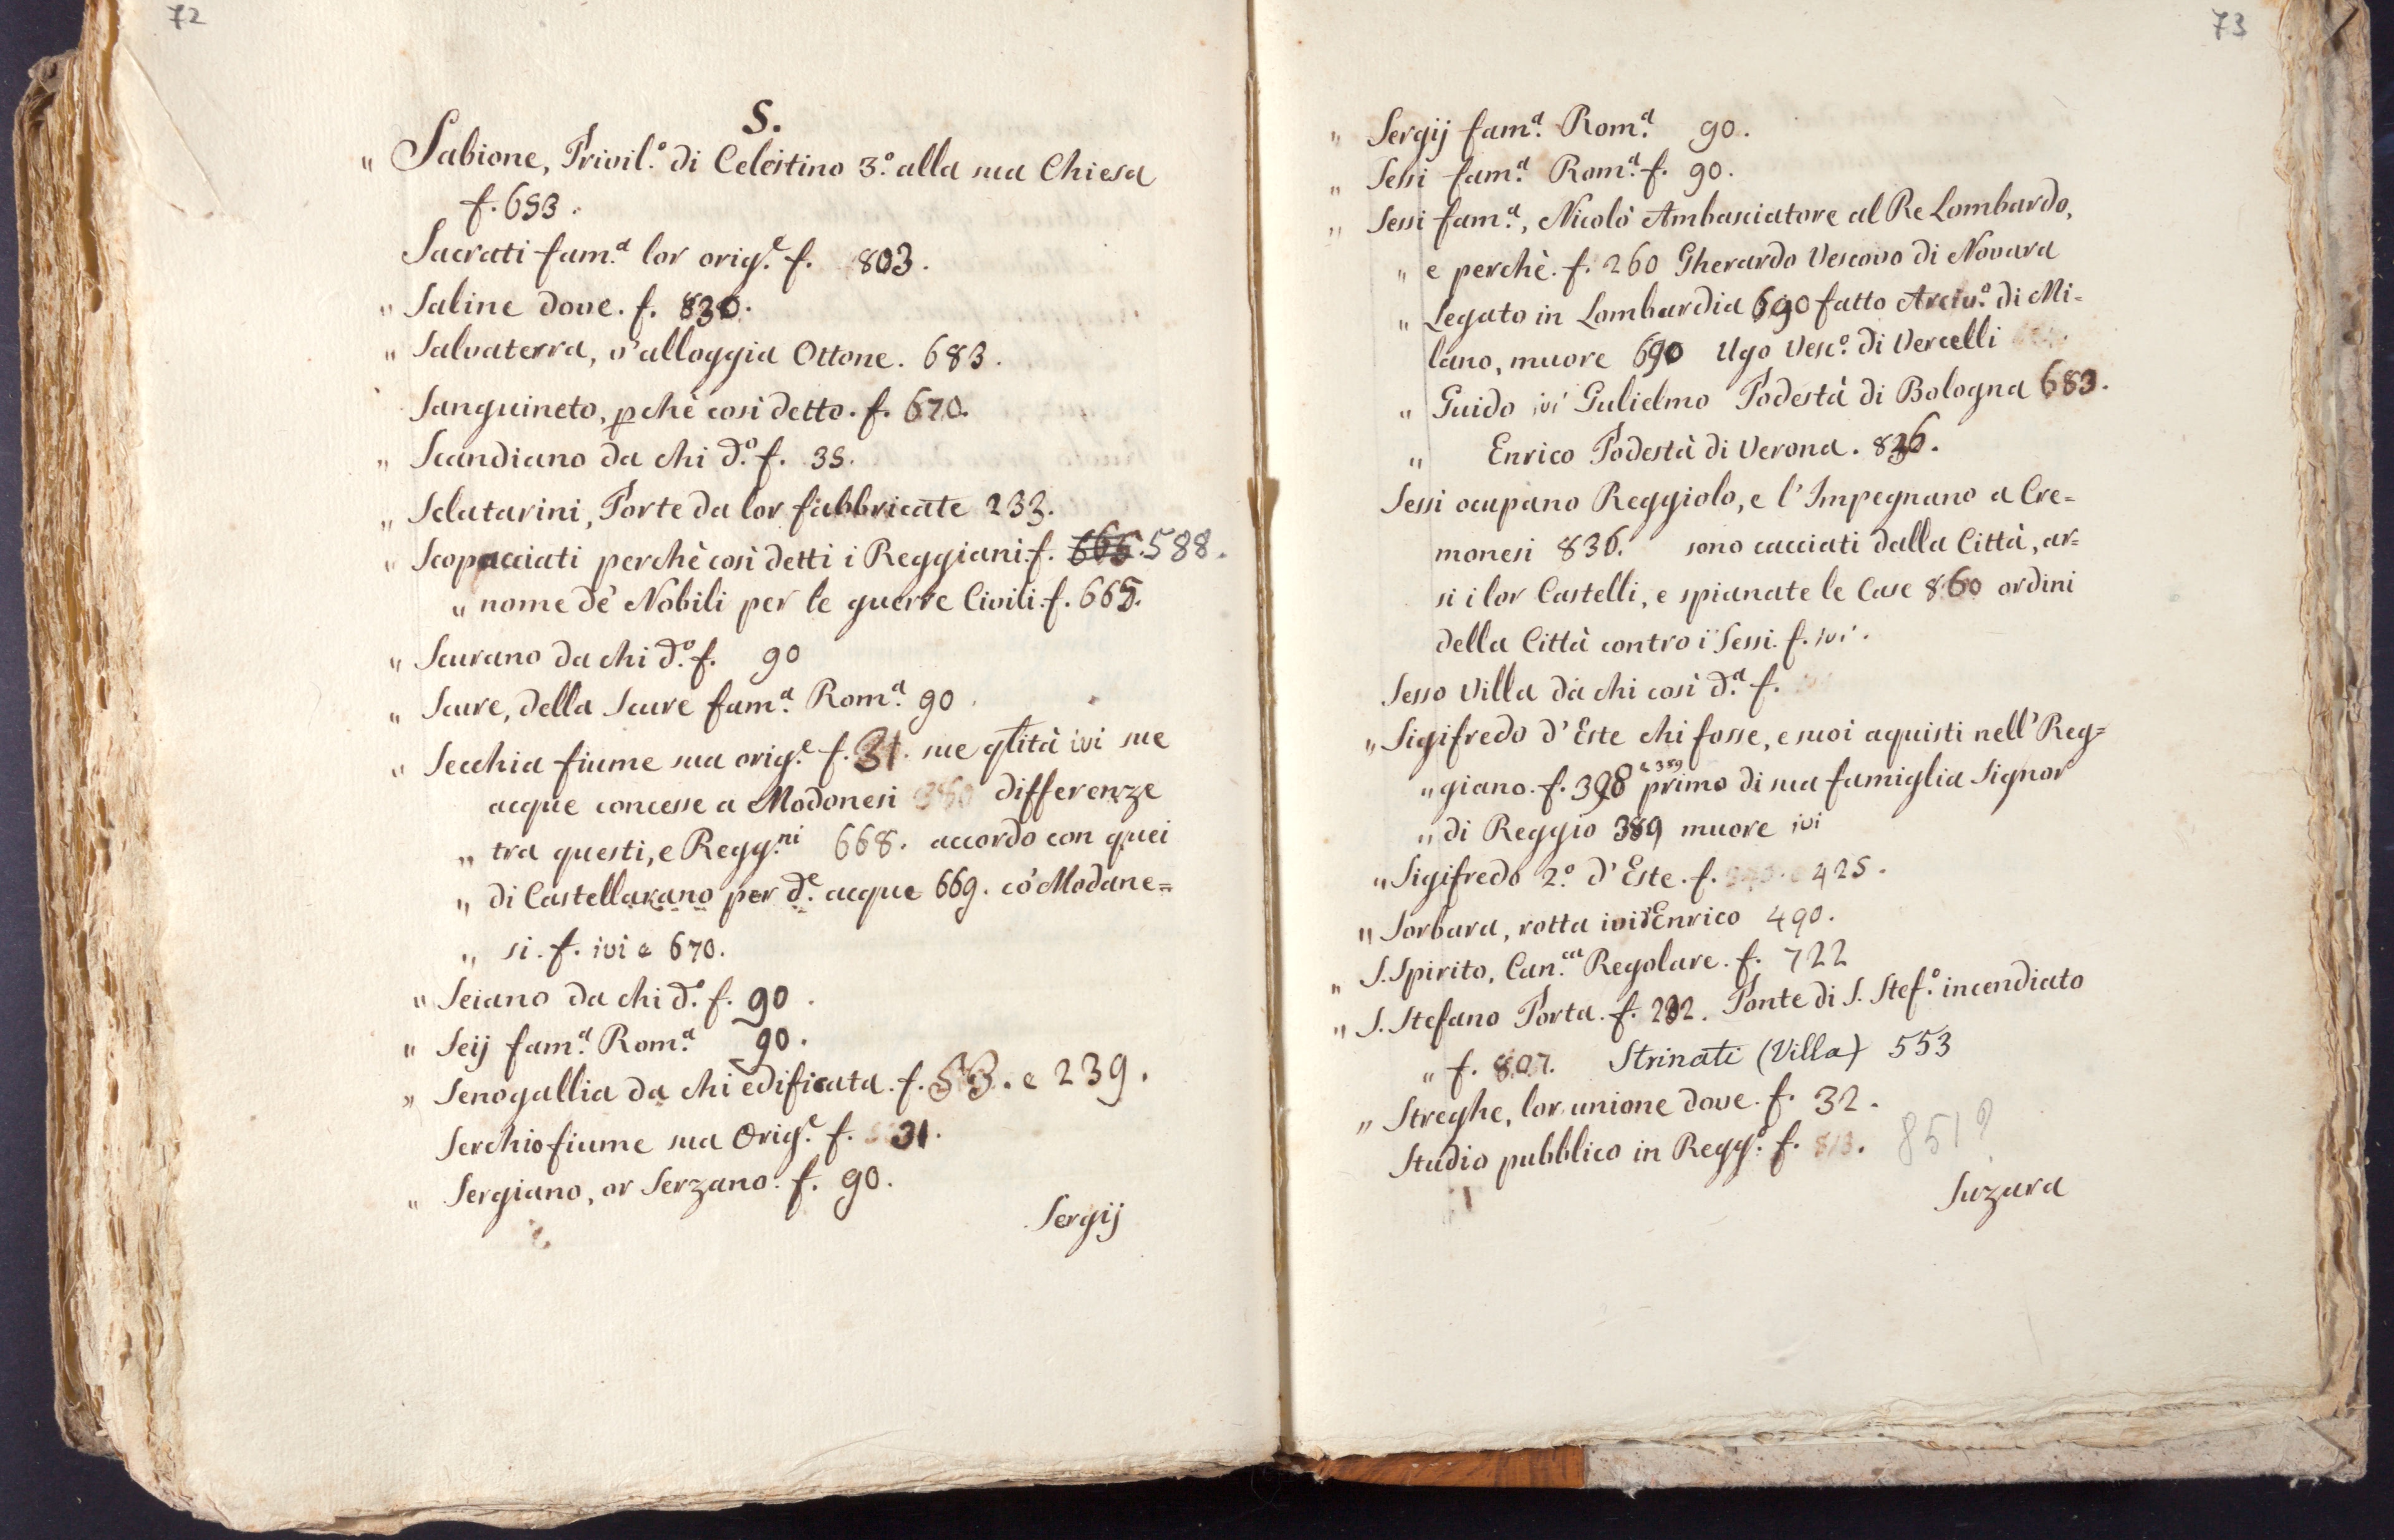 72
S.
" Sabione, Privil.º di Celestino 3.º alla sua Chiesa
f. 653.
Sacrati fam.ª lor orig.e f. 803.
" Saline dove. f. 830.
" Salvaterra, v'alloggia Ottone. 683.
Sanguineto, pchè così detto. f. 670.
" Scandiano da chi d.º f. 35.
" Sclatarini, Porte da lor fabbricate 233.
" Scopacciati perchè così detti i Reggiani. f. 666. 588.
" nome de' Nobili per le guerre Civili. f. 665.
" Scurano da chi d.º f. 90
" Scure, della Scure fam.ª Rom.ª 90.
" Secchia fiume sua orig.e f. 31. sue qlità ivi sue
acque concesse a Modonesi differenze
" tra questi, e Regg.ni 668. accordo con quei
" di Castellarano per d.e acque 669. co' Modane=
" si. f. ivi e 670.
" Seiano da chi d.º f. 90.
" Seij fam.ª Rom.ª 90.
" Senogallia da chi edificata. f. 53. e 239.
Serchio fiume sua Orig.e f. 31.
" Sergiano, or Serzano. f. 90.
Sergij
73
" Sergij fam.ª Rom.ª 90.
" Sessi fam.ª Rom.ª f. 90.
" Sessi fam.ª, Nicolò Ambasciatore al Re Lombardo,
" e perchè. f. 260 Gherardo Vescovo di Novara
" Legato in Lombardia 690 fatto Arciv.º di Mi=
lano, muore 690 Ugo Vesc.º di Vercelli
" Guido ivi Gulielmo Podestà di Bologna 683.
" Enrico Podestà di Verona. 826.
Sessi ocupano Reggiolo, e l'Impegnano a Cre=
monesi 836. sono cacciati dalla Città, ar=
si i lor Castelli, e spianate le Case 860 ordini
della Città contro i Sessi. f. ivi.
Sesso Villa da chi così d.ª f.
" Sigifredo d'Este chi fosse, e suoi aquisti nell'Reg=
" giano. f. 398 e 389 primo di sua famiglia Signor
" di Reggio 389 muore ivi
" Sigifredo 2.º d'Este. f. e 425.
" Sorbara, rotta ivi d'Enrico 490.
" S. Spirito, Can.ca Regolare. f. 722
" S. Stefano Porta. f. 232. Ponte di S. Stef.º incendiato
" f. 807. Strinati (Villa) 553
" Streghe, lor unione dove. f. 32.
Studio pubblico in Regg.º f. 813. 851?
Suzara